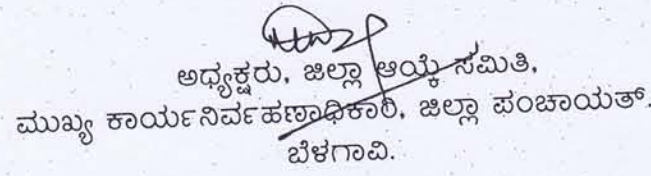 ಅಧ್ಯಕ್ಷರು, ಜಿಲ್ಲಾ ಆಯ್ಕೆ ಸಮಿತಿ,
ಮುಖ್ಯ ಕಾರ್ಯನಿರ್ವಹಣಾಧಿಕಾರಿ, ಜಿಲ್ಲಾ ಪಂಚಾಯತ್.
ಬೆಳಗಾವಿ.